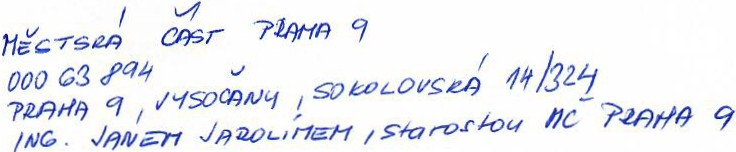 MĚSTSKÁ ČÁST PRAHA 9
000 63 894
PRAHA 9, VYSOČANY, SOKOLOVSKÁ 14/324
ING. JANEM JAROLÍMEM, starostou MČ PRAHA 9